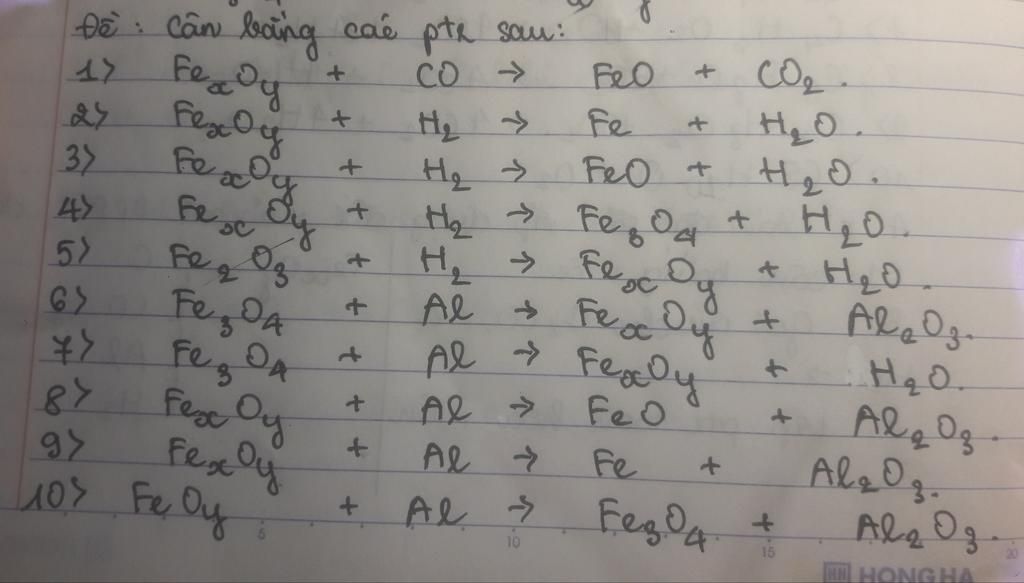 Đề : Cân bằng các ptr sau:
1> FexOy + CO → FeO + CO2.
2> FexOy + H2 → Fe + H2O.
3> FexOy + H2 → FeO + H2O.
4> FexOy + H2 → Fe3O4 + H2O.
5> Fe2O3 + H2 → FexOy + H2O.
6> Fe3O4 + Al → FexOy + Al2O3.
7> Fe3O4 + Al → FexOy + H2O.
8> FexOy + Al → FeO + Al2O3.
9> FexOy + Al → Fe + Al2O3.
10> FeOy + Al → Fe3O4 + Al2O3.
5 10 15 20
HH HONG HA